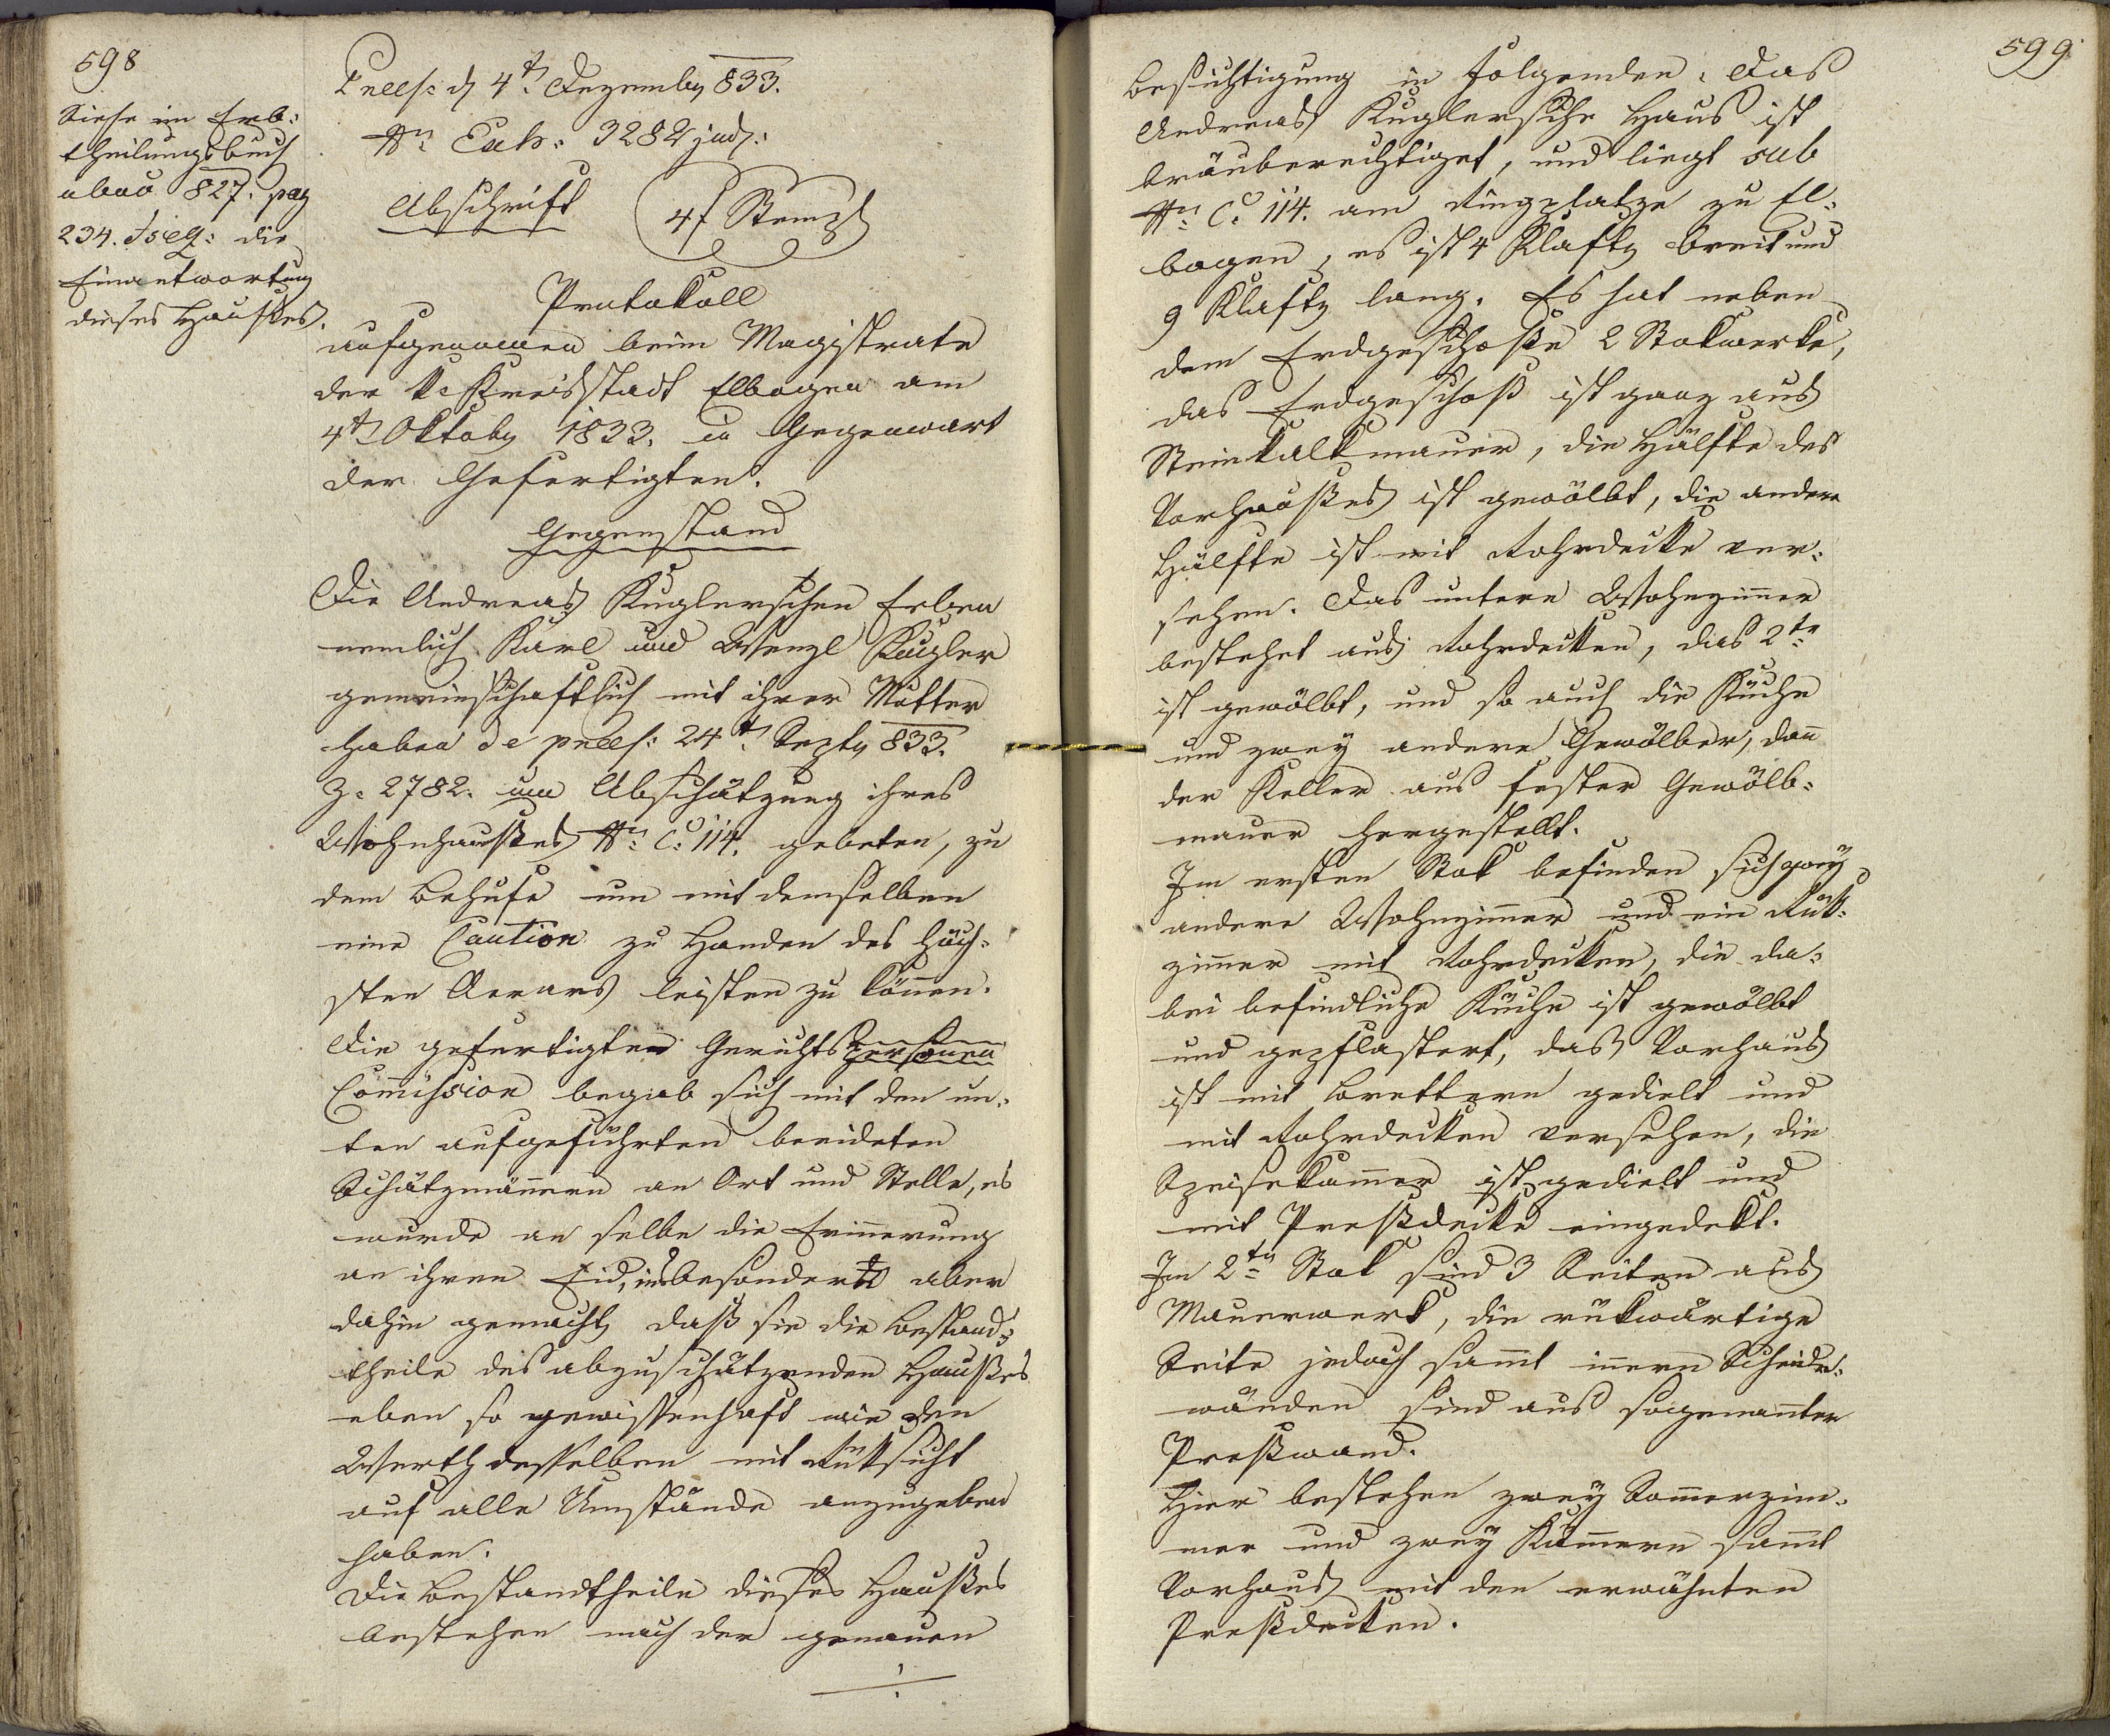 598
Siehe im Erb:
theilungsbuch
abau 827. pag
234. et seq: die
Einantwortung
dieses Hausses.
Praes: d 4t. Dezember 833.
Nr. Exh: 3282 jud:
Abschrift
4 f Stempl
Protokoll
aufgenommen beim Magistrate
der k. Kreisstadt Elbogen am
4t Oktober 1833. in Gegenwart
der Gefertigten.
Gegenstand
Die Andreas Kuglerschen Erben
nemlich Karl und Wenzl Kugler
gemeinschaftlich mit ihrer Mutter
haben de praes: 24t. Septb 833.
Z. 2782. um Abschätzung ihres
Wohnhausses Nr. C. 114. gebeten, zu
dem Behufe um mit demselben
eine Caution zu Handen des höch:
sten Aerars leisten zu können.
Die gefertigten Gerichtspersonen
Commission begab sich mit den un:
ten aufgeführten beeideten
Schätzmännern an Ort und Stelle, es
wurde an selbe die Erinnerung
an ihren Eid, insbesondere aber
dahin gemacht, daß sie die Bestand:
theile des abzuschätzenden Hausses
eben so gewissenhaft wie den
Werth desselben mit Rüksicht
auf alle Umstände anzugeben
haben.
Die Bestandtheile dieses Hausses
bestehen nach der genauen
599
Besichtigung in folgenden: Das
Andreas Kuglersche Haus ist
bräuberechtiget, und liegt sub
Nr. C. 114. am Ringplatze zu El:
bogen, es ist 4 Klafter breit und
9 Klafter lang. Es hat neben
dem Erdgeschoße 2 Stokwerke,
das Erdgeschoß ist ganz aus
Steinkalkmauer, die Hälfte des
Vorhaußes ist gewölbt, die andere
Hälfte ist mit Rohrdecke ver:
sehen. Das untere Wohnzimmer
bestehet aus Rohrdecken, das 2te
ist gewölbt, und so auch die Küche
und zwey andere Gewölber, dann
der Keller aus fester Gewölb:
mauer hergestellt.
Im ersten Stok befinden sich zwey
andere Wohnzimmer und ein Rük:
zimmer mit Rohrdecken, die da:
bei befindliche Küche ist gewölbt
und gepflastert, das Vorhaus
ist mit Brettern gedielt und
mit Rohrdecken versehen, die
Speisekammer ist gedielt und
mit Preßdecke eingedekt.
Im 2ten Stok sind 3 Seiten aus
Mauerwerk, die rükwärtige
Seite jedoch sammt innern Scheide:
wänden sind aus sogenannter
Preßwand.
Hier bestehen zwey Sommerzim:
mer und zwey Kammern sammt
Vorhaus mit den erwähnten
Preßdecken.